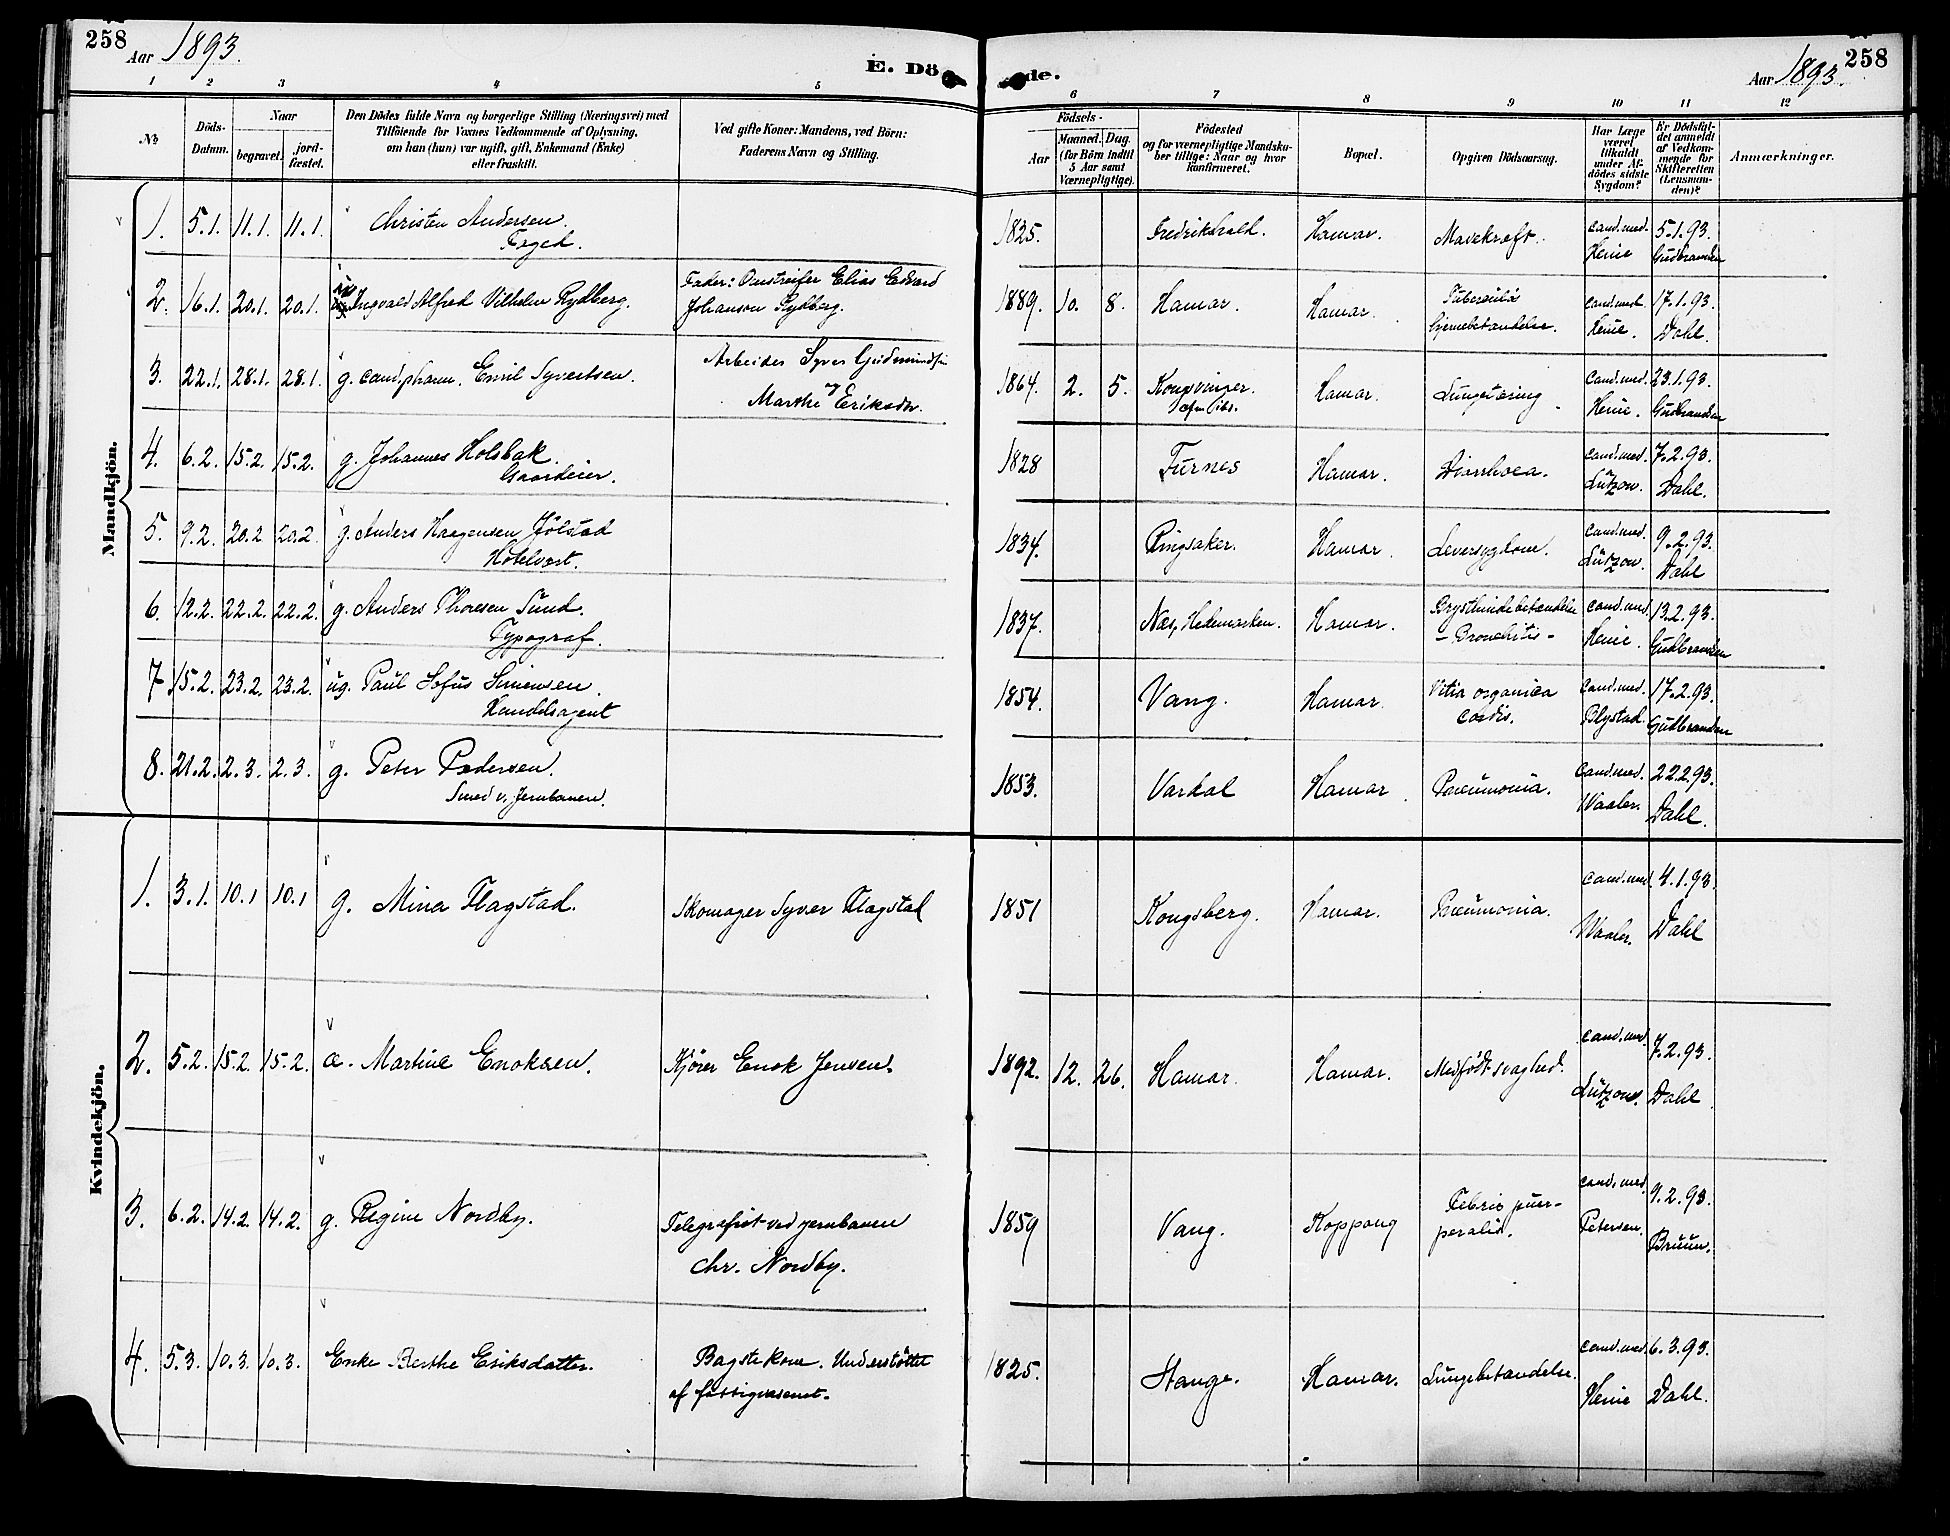 258 Aar 1893. E. Dö de. Aar 1893. 258
1 2 3 4 5 6 7 8 9 10 11 12
No.
Döds-Datum.
Naar
begravet.
jord-fæstet.
Den Dödes fulde Navn og borgerlige Stilling (Næringsvei) med
Tilföiende for Voxnes Vedkommende af Oplysning,
om han (hun) var ugift, gift, Enkemand (Enke)
eller fraskilt.
Ved gifte Koner: Mandens, ved Börn:
Faderens Navn og Stilling.
Födsels-
Aar
Maaned. Dag.
(for Börn indtil
5 Aar samt
Værnepligtige).
Födested
og for værnepligtige Mandska-
ber tillige: Naar og hvor
konfirmeret.
Bopæl.
Opgiven Dödsaarsag.
Har Læge
været
tilkaldt
under Af-
dödes sidste
Sygdom?
Er Dödsfal-
det anmeldt
af Vedkom-
mende for
Skifteretten
(Lensman-
den)?
Anmærkninger.
Mandkjön.
1. 5.1. 11.1. 11.1. Christen Andersen. 1825. Fredrikshald. Hamar. Mavekræft. Cand. med. 5.1.93.
Heine Gudbrandsen
2. 16.1. 20.1. 20.1. Ingvald Alfred Vilhelm Rydberg. Fader: Omstreifer Elias Edvard
Johansen Rydberg. 1889. 10. 8. Hamar. Hamar. Tuberculøs
Hjernebetændelse. cand. med. 17.1.93.
Heine. Dahl.
3. 22.1. 28.1. 28.1. g. cand. pharm. Emil Syvertsen. Arbeider Syver Gudmundsen
og
Marthe Eriksdtr. 1864. 2. 5. Kongsvinger. Hamar. Lungetæring Cand. med. 23.1.93.
Heine. Gudbrandsen
4. 6.2. 15.2. 15.2. g. Johannes Holsbak 1828 Furnes Hamar. Diarrhoea. cand. med. 7.2.93.
Gaardeier. Lützow. Dahl.
5. 9.2. 20.2 20.2. g. Anders Haagensen Jølstad 1834. Ringsaker. Hamar. Leversygdom. Cand. med. 9.2.93.
Hotelvært. Lützow. Dahl
6. 12.2. 22.2. 22.2. g. Anders Thoresen Sund. 1837. Næs, Hedemarken. Hamar. Brysthindebetændelse cand. med. 13.2.93.
Typograf. - Bronchitis - Heine. Gudbrandsen
7 15.2. 23.2. 23.2. ug. Paul Sofus Simensen. 1854. Vang. Hamar. Vitia organica Cand. med. 17.2.93.
Handelsagent cordis. Blystad. Gudbrandsen
8. 21.2. 2.3. 2.3. g. Peter Pedersen. 1853. Vardal Hamar. Pneumonia. Cand. med. 22.2.93.
Smed v. Jernbanen. Waaler. Dahl.
Kvindekjön.
1. 3.1. 10.1 10.1 g. Mina Flagstad. Skomager Syver Flagstad 1851 Kongsberg. Hamar. Pneumonia. Cand. med. 4.1.93.
Waaler. Dahl
2. 5.2. 15.2. 15.2. æ. Martine Enoksen. Kjører Enok Jensen. 1892. 12. 26. Hamar. Hamar. Medfødt svaghed. cand. med. 7.2.93.
Lützow. Dahl
3. 6.2. 14.2. 14.2. g. Regine Nordby. Telegrafist ved jernbanen
Chr. Nordby. 1859 Vang. Koppang Febris puer-
peralis. cand. med. 9.2.93.
Petersen. Bruun.
4. 5.3. 10.3. 10.3. Enke Berthe Eriksdatter. Bagstekone. Understøttet
af fattigvæsenet. 1825. Stange. Hamar. Lungebetændelse. cand. med. 6.3.93.
Heine Dahl.